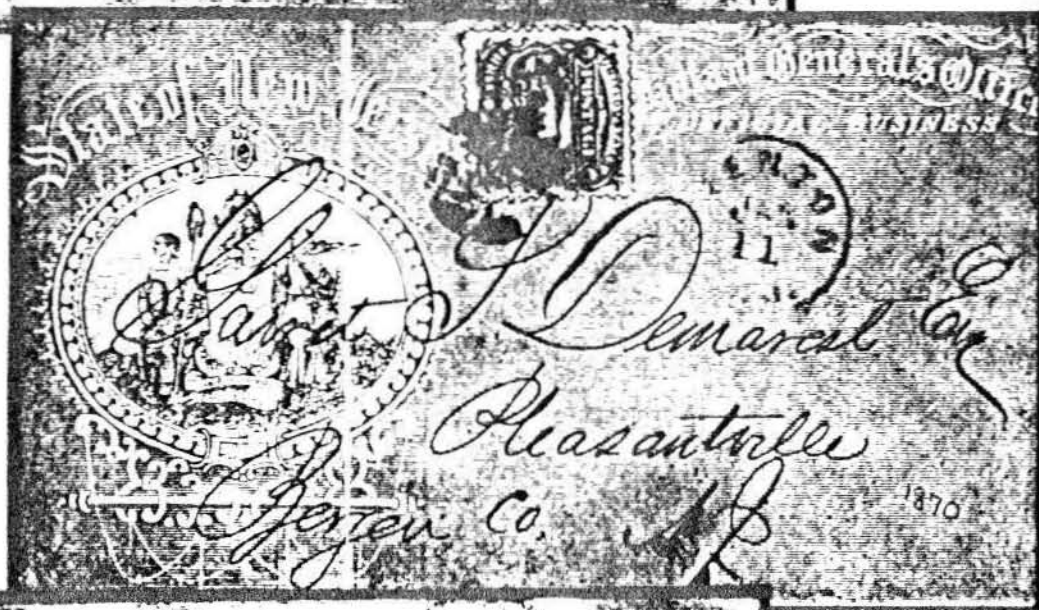 State of New Jersey
General's Office
OFFICIAL BUSINESS
11
Garret S Demarest Esq
Pleasantville
Bergen Co. N J
1870